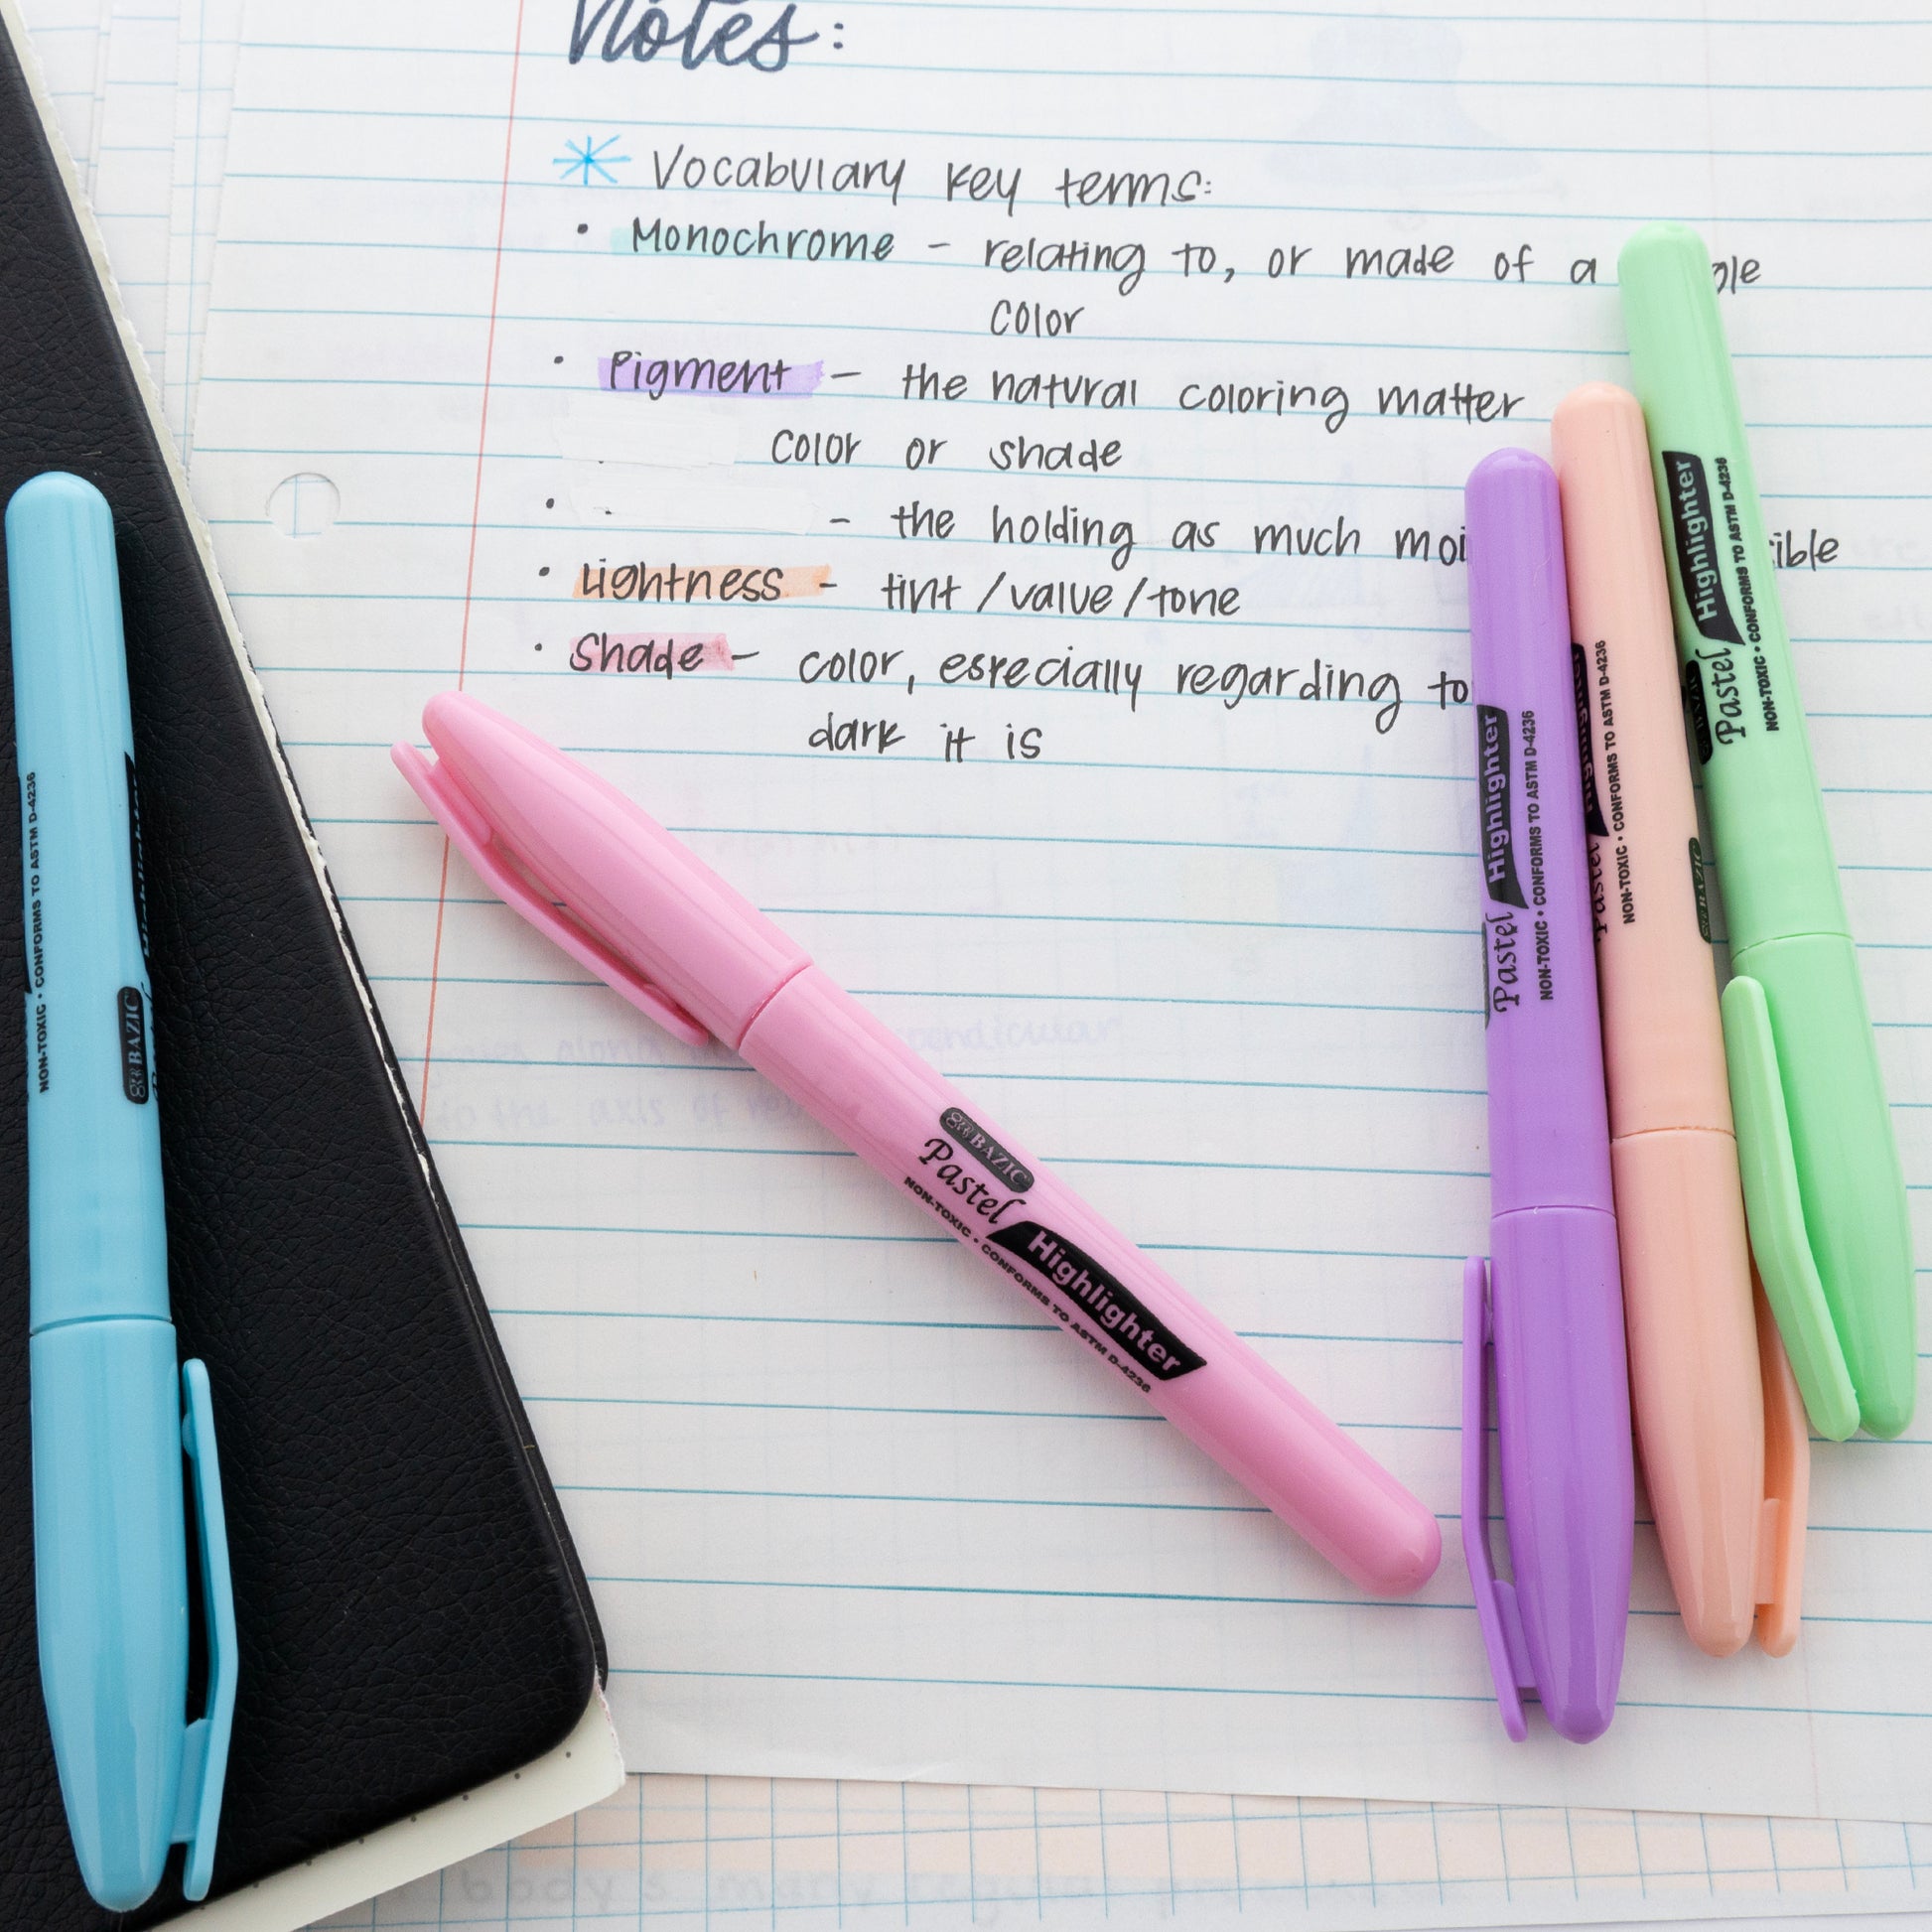 Notes:
* Vocabulary key terms:
• Monochrome - relating to, or made of a
color
• Pigment - the natural coloring matter
color or shade
• - the holding as much
• Lightness - tint/value/tone
• Shade - color, especially regarding to
dark it is
NON-TOXIC • CONFORMS TO ASTM D-4236
BAZIC
BAZIC
Pastel Highlighter
NON-TOXIC • CONFORMS TO ASTM D-4236
Pastel Highlighter
NON-TOXIC • CONFORMS TO ASTM D-4236
Pastel Highlighter
NON-TOXIC • CONFORMS TO ASTM D-4236
BAZIC
Pastel Highlighter
NON-TOXIC • CONFORMS TO ASTM D-4236